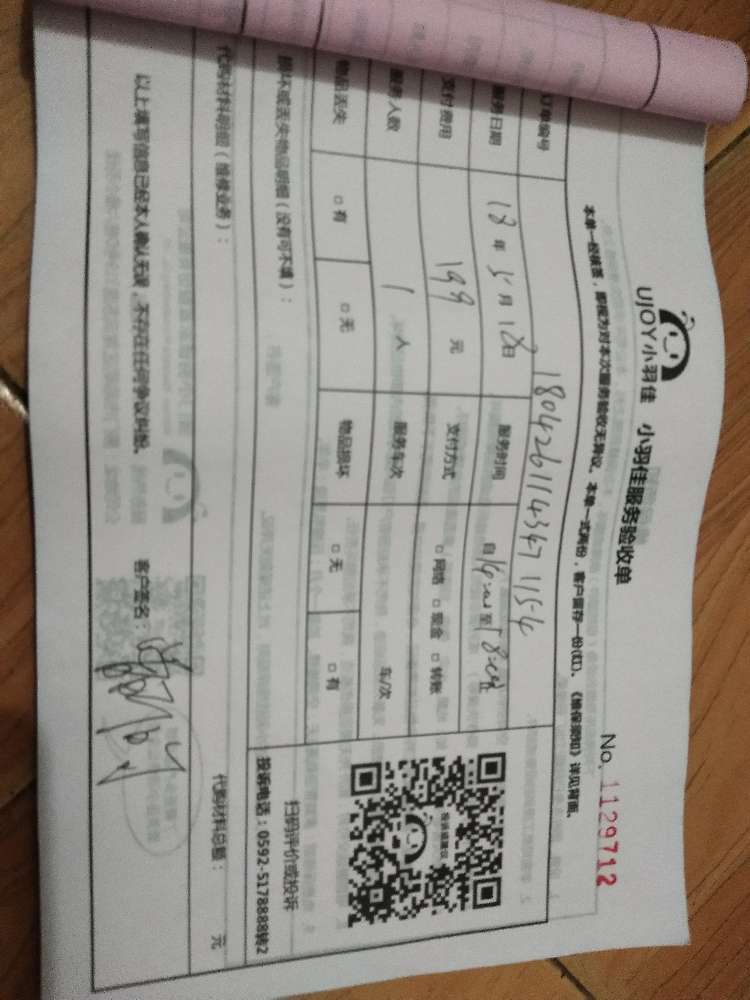 UJOY小羽佳 小羽佳服务验收单
No. 1129712
本单一经核签，即视为对本次服务验收无异议。本单一式两份，客户留存一份(红)。《维保须知》详见背面。
订单编号 1804261143471154
服务日期 18年5月12日 服务时间 自14:00至18:00止
支付费用 199元 支付方式 □网络 □现金 □转账
服务人数 1人 服务车次 车/次
物品丢失 □有 □无 物品损坏 □无 □有
投诉或建议
扫码评价或投诉
投诉电话：0592-5178888转2
损坏或丢失物品明细（没有可不填）：
代购材料明细（维修业务）： 代购材料总额： 元
以上填写信息已经本人确认无误，不存在任何争议纠纷。 客户签名：